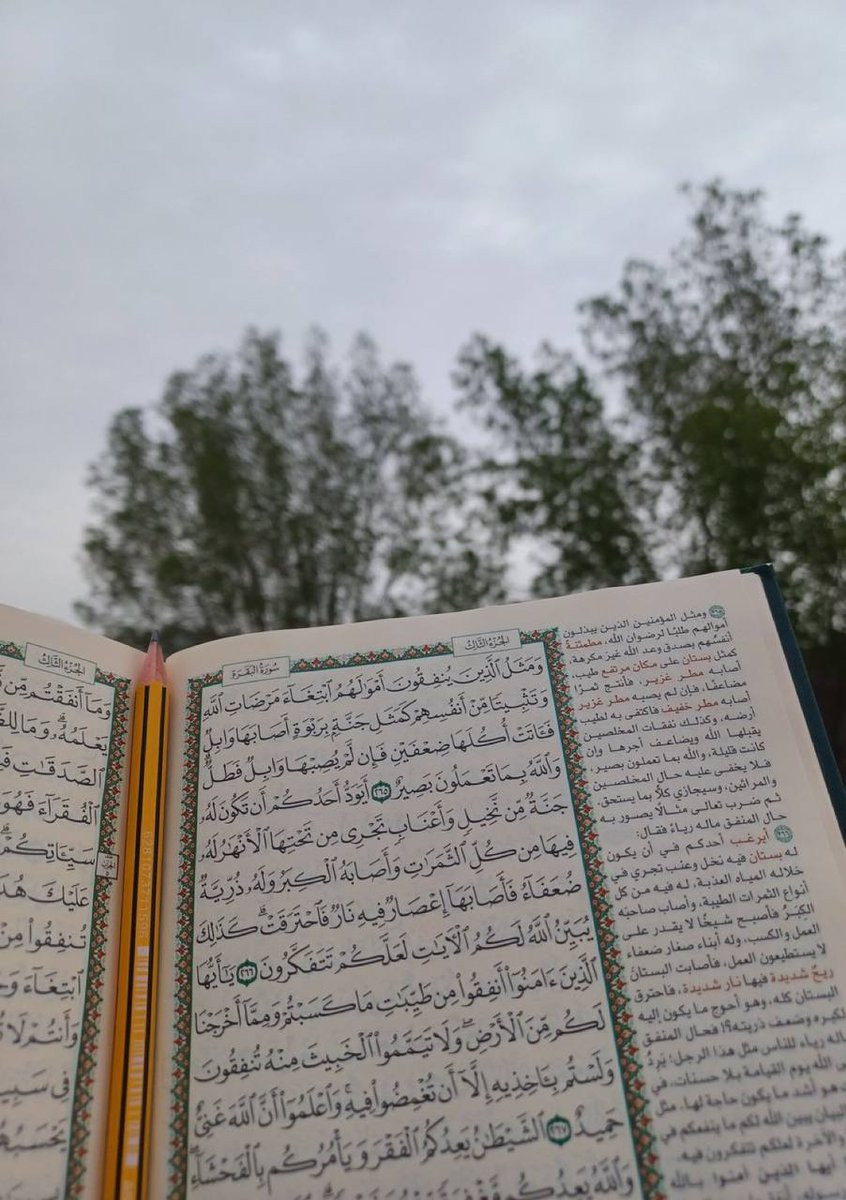 الجزء الثالث
سورة البقرة
وَمَثَلُ ٱلَّذِينَ يُنفِقُونَ أَمۡوَٰلَهُمُ ٱبۡتِغَآءَ مَرۡضَاتِ ٱللَّهِ
وَتَثۡبِيتٗا مِّنۡ أَنفُسِهِمۡ كَمَثَلِ جَنَّةِۭ بِرَبۡوَةٍ أَصَابَهَا وَابِلٞ
فَـَٔاتَتۡ أُكُلَهَا ضِعۡفَيۡنِ فَإِن لَّمۡ يُصِبۡهَا وَابِلٞ فَطَلّٞۗ
وَٱللَّهُ بِمَا تَعۡمَلُونَ بَصِيرٌ ٢٦٥ أَيَوَدُّ أَحَدُكُمۡ أَن تَكُونَ لَهُۥ
جَنَّةٞ مِّن نَّخِيلٖ وَأَعۡنَابٖ تَجۡرِي مِن تَحۡتِهَا ٱلۡأَنۡهَٰرُ لَهُۥ
فِيهَا مِن كُلِّ ٱلثَّمَرَٰتِ وَأَصَابَهُ ٱلۡكِبَرُ وَلَهُۥ ذُرِّيَّةٞ
ضُعَفَآءُ فَأَصَابَهَآ إِعۡصَارٞ فِيهِ نَارٞ فَٱحۡتَرَقَتۡۗ كَذَٰلِكَ
يُبَيِّنُ ٱللَّهُ لَكُمُ ٱلۡأٓيَٰتِ لَعَلَّكُمۡ تَتَفَكَّرُونَ ٢٦٦ يَٰٓأَيُّهَا
ٱلَّذِينَ ءَامَنُوٓاْ أَنفِقُواْ مِن طَيِّبَٰتِ مَا كَسَبۡتُمۡ وَمِمَّآ أَخۡرَجۡنَا
لَكُم مِّنَ ٱلۡأَرۡضِۖ وَلَا تَيَمَّمُواْ ٱلۡخَبِيثَ مِنۡهُ تُنفِقُونَ
وَلَسۡتُم بِـَٔاخِذِيهِ إِلَّآ أَن تُغۡمِضُواْ فِيهِۚ وَٱعۡلَمُوٓاْ أَنَّ ٱللَّهَ غَنِيٌّ
حَمِيدٌ ٢٦٧ ٱلشَّيۡطَٰنُ يَعِدُكُمُ ٱلۡفَقۡرَ وَيَأۡمُرُكُم بِٱلۡفَحۡشَآءِۖ
وَٱللَّهُ يَعِدُكُم مَّغۡفِرَةٗ
٢٦٥ ومثل المؤمنين الذين يبذلون
أموالهم طلبًا لرضوان الله، مطمئنة
أنفسُهم بصدق وعد الله غير مكرهة،
كمثل بستان على مكان مرتفع طيب،
أصابه مطر غزير، فأنتج ثمرًا
مضاعفًا، فإن لم يصبه مطر غزير
أصابه مطر خفيف فاكتفى به لطيب
أرضه، وكذلك نفقات المخلصين
يقبلها الله ويضاعف أجرها وإن
كانت قليلة، والله بما تعملون بصير،
فلا يخفى عليه حال المخلصين
والمرائين، وسيجازي كلًّا بما يستحق.
ثم ضرب تعالى مثالًا يصور به
حال المنفق ماله رياءً فقال:
٢٦٦ أيرغب أحدكم في أن يكون
له بستان فيه نخل وعنب تجري في
خلاله المياه العذبة، له فيه من كل
أنواع الثمرات الطيبة، وأصاب صاحبَه
الكِبَرُ فأصبح شيخًا لا يقدر على
العمل والكسب، وله أبناء صغار ضعفاء
لا يستطيعون العمل، فأصابت البستانَ
ريحٌ شديدة فيها نار شديدة، فاحترق
البستان كله، وهو أحوج ما يكون إليه
لكبره وضعف ذريته؟! فحال المنفق
ماله رياء للناس مثل هذا الرجل؛ يَرِدُ
على الله يوم القيامة بلا حسنات، في
هو أشد ما يكون حاجة لها. مثل
البيان يبين الله لكم ما ينفعكم في
والآخرة لعلكم تتفكرون فيه.
أيها الذين آمنوا بالله
الجزء الثالث
وَمَآ أَنفَقۡتُم مِّن
يَعۡلَمُهُۥۗ وَمَا
ٱلصَّدَقَٰتِ
ٱلۡفُقَرَآءَ فَهُوَ
سَيِّـَٔاتِكُمۡۗ
عَلَيۡكَ
تُنفِقُواْ مِنۡ
ٱبۡتِغَآءَ
وَأَنتُمۡ لَا
فِي سَبِيلِ
يَحۡسَبُهُمُ